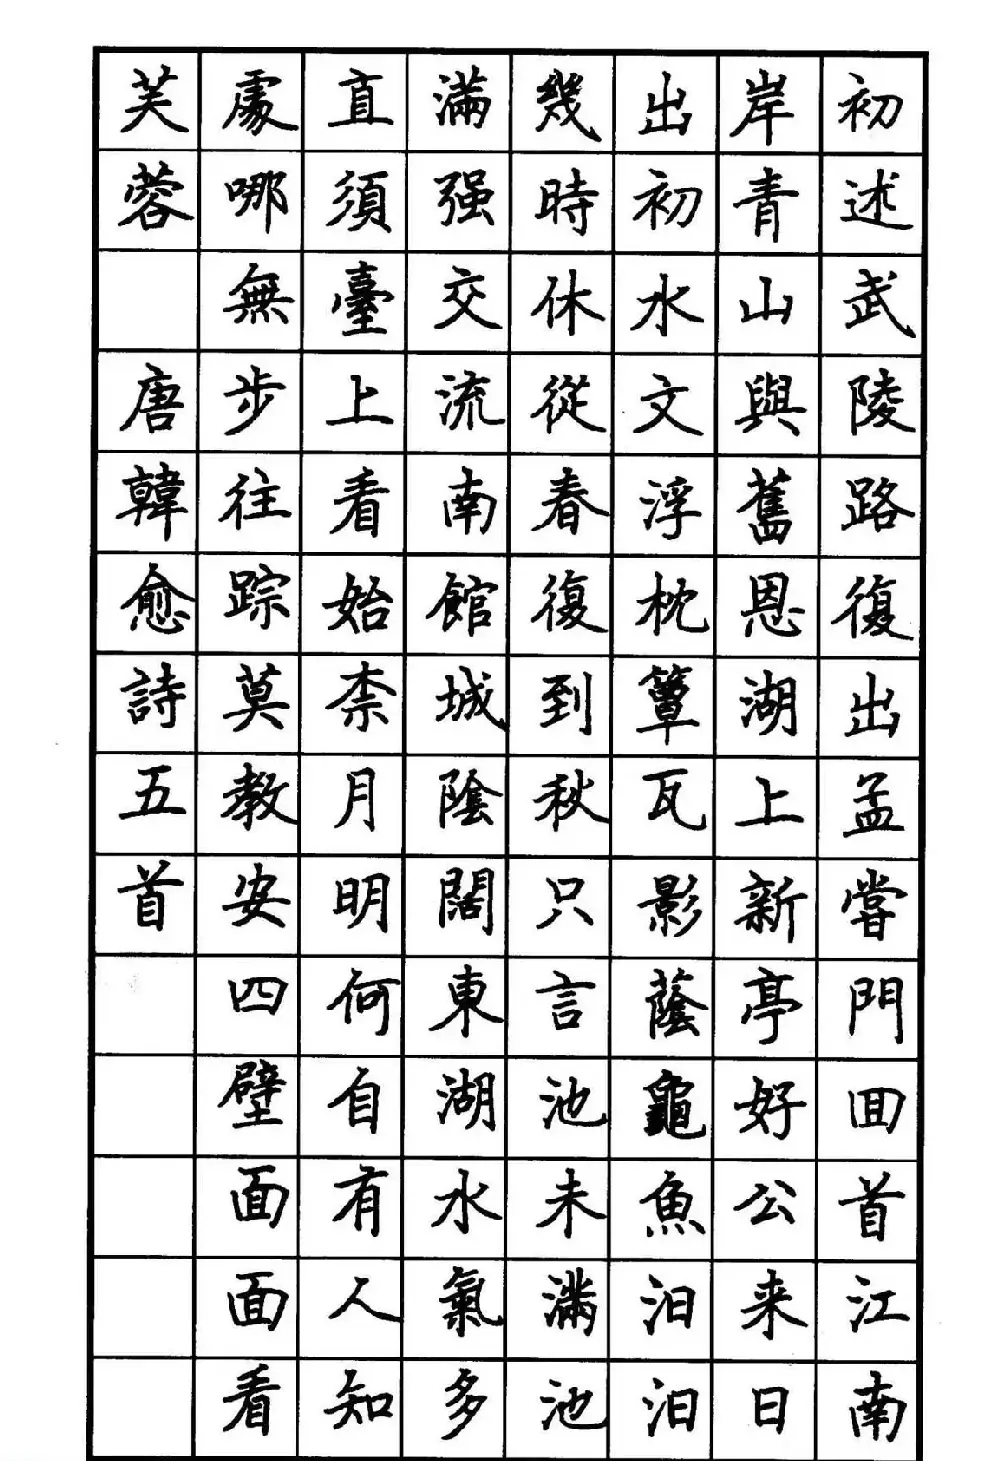 初述武陵路復出孟嘗門囬首江南
岸青山與舊恩湖上新亭好公来日
出初水文浮枕簟瓦影蔭龜魚汩汩
幾時休從春復到秋只言池未滿池
滿强交流南館城陰闊東湖水氣多
直須臺上看始柰月明何自有人知
處哪無步往踪莫教安四壁面面看
芙蓉 唐韓愈詩五首